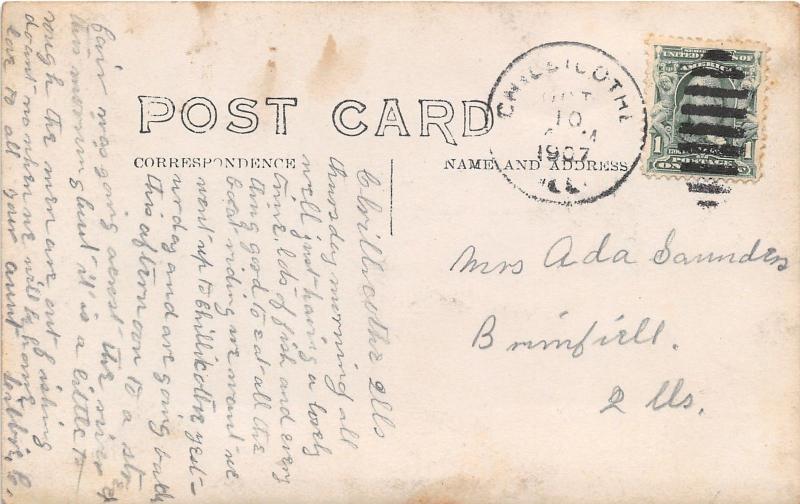 POST CARD
CORRESPONDENCE
NAME AND ADDRESS
CHILLICOTHE
OCT
10
1907
ILL.
UNITED OF
AMERICA
1 1
POSTAGE
Mrs Ada Saunders
Brimfiell.
Ills.
Chillicothe Ills
thursday morning all
well Just having a lovely
time. lots of fish and every
thing good to eat all the
boat riding we want we
went up to Chillikothe yest-
urday and are going back
this afternoon to a str
fair was going acrost the river
this morning but it is a little to
rough the men are out fishing
dount no when we will be home
love to all your aunt